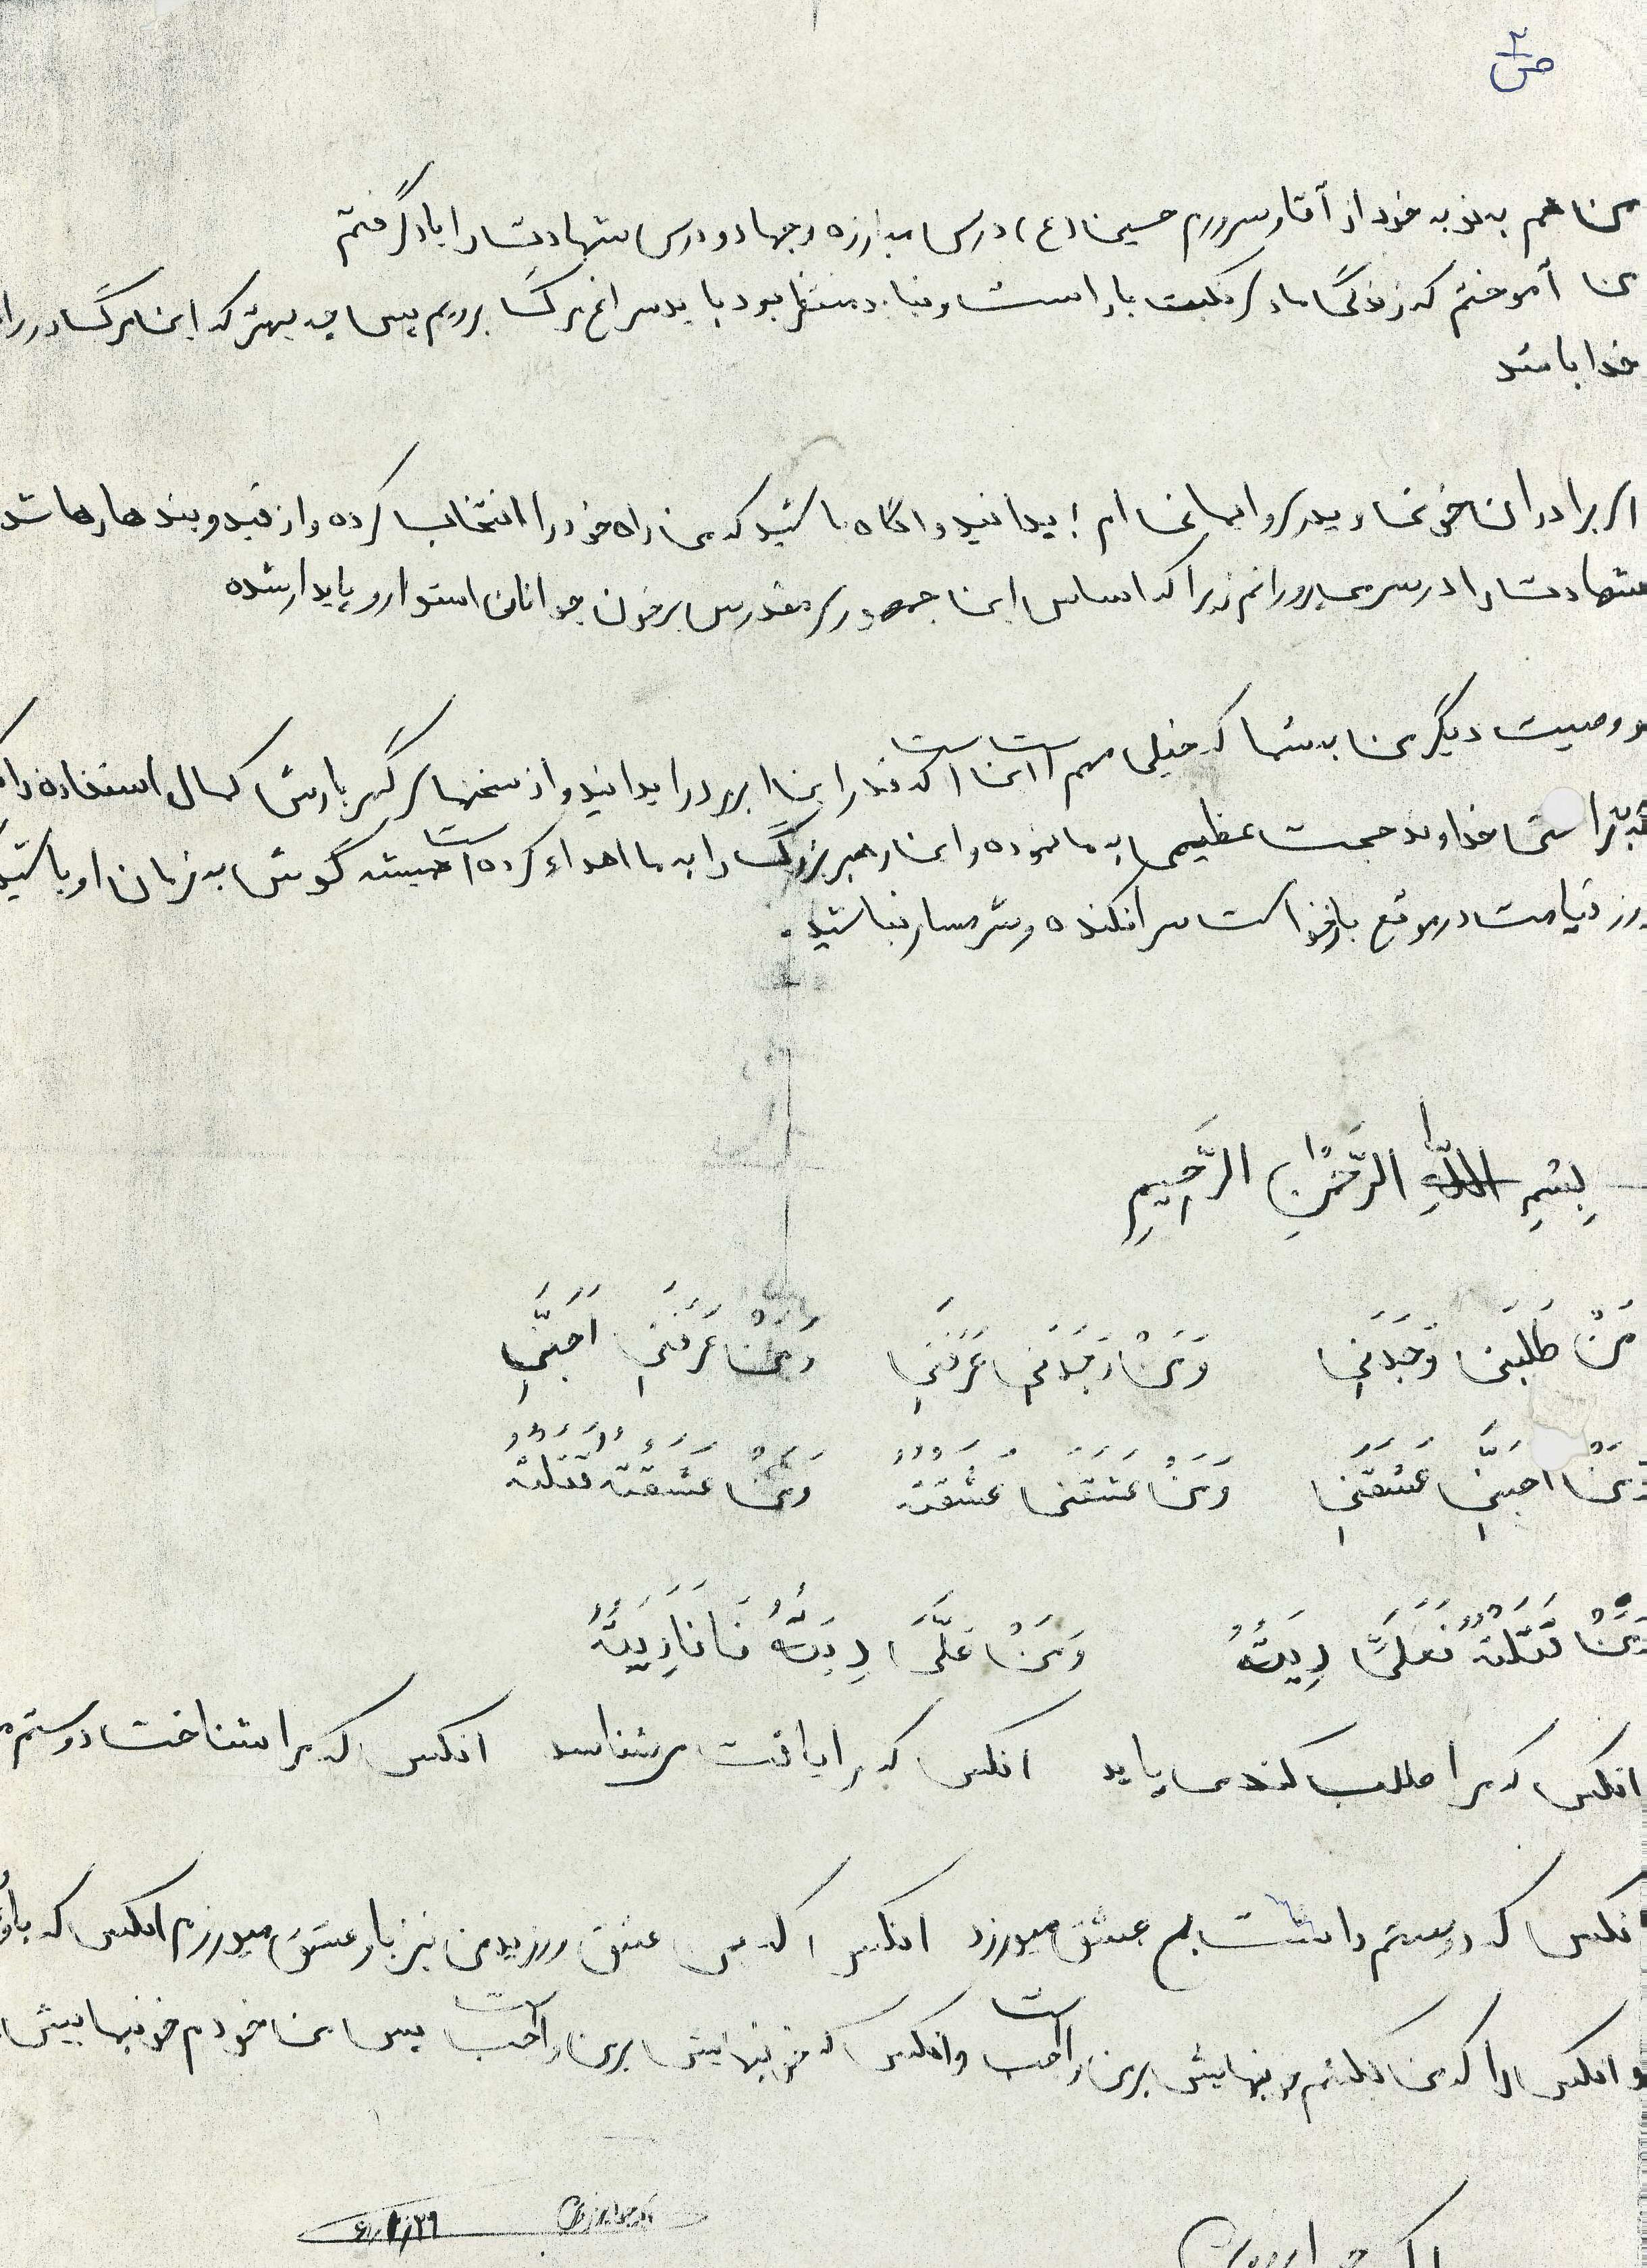 ص ۲
من هم به نوبه خود از آقا و سرورم حسین (ع) درس مبارزه و جهاد و درس شهادت را یاد گرفتم
من آموختم که زندگی مادی نکبت بار است و نباید منتظر بود باید سراغ مرگ برویم پس چه بهتر که این مرگ در راه
خدا باشد
ای برادران خونی و پدری و ایمانی ام ! بدانید و آگاه باشید که من راه خود را انتخاب کرده و از قید و بندها رها شده
شهادت را در سر می پرورانم زیرا که اساس این جمهوری مقدس بر خون جوانان استوار و پایدار شده
و وصیت دیگر من به شما که خیلی مهم است اینست که قدر این ابرمرد را بدانید و از سخنهای گهربارش کمال استفاده را
براستی خداوند حجت عظیمی به ما نموده و این رهبر بزرگ را به ما اهداء کرده است همیشه گوش به فرمان او باشید
روز قیامت در موقع بازخواست سرافکنده و شرمسار نباشید .
بِسْمِ اللَّهِ الرَّحْمٰنِ الرَّحِیمِ
مَنْ طَلَبَنی وَجَدَنی وَ مَنْ وَجَدَنی عَرَفَنی وَ مَنْ عَرَفَنی اَحَبَّنی
وَ مَنْ اَحَبَّنی عَشَقَنی وَ مَنْ عَشَقَنی عَشَقْتُهُ وَ مَنْ عَشَقْتُهُ قَتَلْتُهُ
وَ مَنْ قَتَلْتُهُ فَعَلَیَّ دِیَتُهُ وَ مَنْ عَلَیَّ دِیَتُهُ فَاَنَا دِیَتُهُ
انکس که مرا طلب کند می یابد انکس که مرا یافت میشناسد انکس که مرا شناخت دوستم
انکس که دوستم داشت بمن عشق میورزد انکس که بمن عشق ورزید من نیز باو عشق میورزم انکس که باو
و انکس را که من بکشم خونبهایش بر من واجب است و انکس که خونبهایش بر من واجب است پس من خودم خونبهایش
۶۰/۱/۲۹